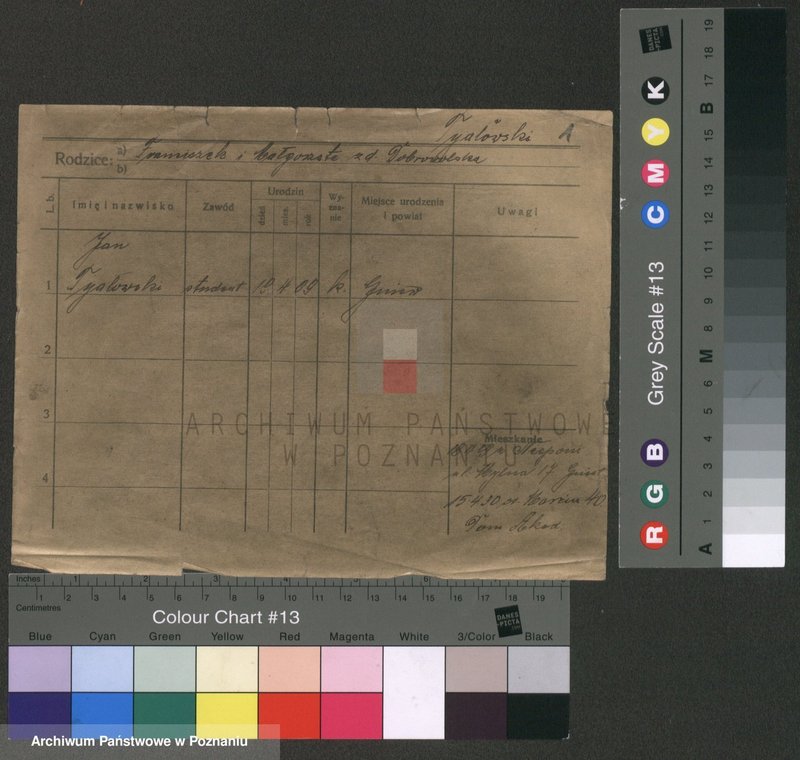 Tyałowski
Rodzice:
a) Franciszek i Małgorzata z d. Dobrowolska
b)
L. b.
Imię i nazwisko
Zawód
Urodzin
dzień
mies.
rok
Wy-
zna-
nie
Miejsce urodzenia
i powiat
Uwagi
Jan
1 Tyałowski student 19 4 09 k.
2
3
4
Mieszkanie
17
15 4 30 św Marcin 40
Dom Akad
ARCHIWUM PAŃSTWOWE
W POZNANIU
Inches 1 2 3 4 5 6
1 2 3 4 5 6 7 8 9 10 11 12 13 14 15 16 17 18 19
Centimetres
Colour Chart #13
DANES
PICTA
.COM
Blue Cyan Green Yellow Red Magenta White 3/Color Black
Archiwum Państwowe w Poznaniu
Grey Scale #13
DANES
PICTA
.COM
R G B C M Y K
A 1 2 3 4 5 6 M 8 9 10 11 12 13 14 15 B 17 18 19